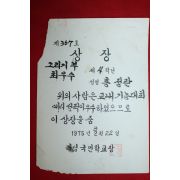 제 367 호
상 장
그리기부
최우수
제 4 학년
성명 홍
위의 사람은 교내 기능대회
에서 성적이 우수하였으므로
이 상장을 줌
1975 년 월 22 일
국민학교장